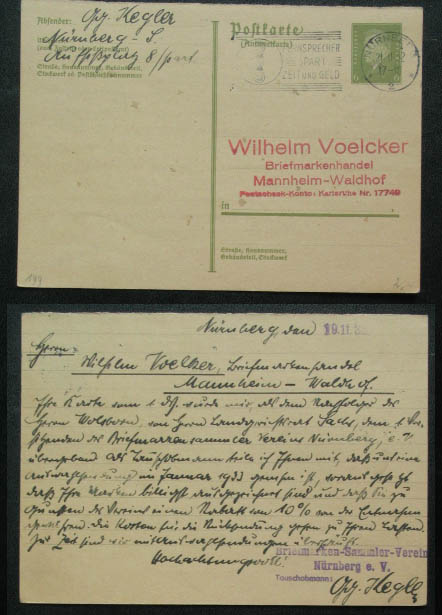 Absender: Gg. Kegler
Nürnberg S.
Aufseßplatz 8/part.
Straße, Hausnummer, Gebäudeteil,
Stockwerk od. Postschließfachnummer
Postkarte
(Antwortkarte)
FERNSPRECHER
SPART
ZEIT UND GELD
NÜRNBERG
6
Wilhelm Voelcker
Briefmarkenhandel
Mannheim-Waldhof
Postscheck-Konto: Karlsruhe Nr. 17749
in
Straße, Hausnummer,
Gebäudeteil, Stockwerk
199
Nürnberg, den 19.11.3
Herrn
Wilhelm Voelker, Briefmarkenhandel
Mannheim - Waldhof.
Ihre Karte vom 1. ds. wurde mir, als dem Nachfolger des
Herrn, von Herrn Landgerichtsrat Sachs, dem 1. Vor-
sitzenden des Briefmarkensammler Vereins Nürnberg, e. V.
übergeben. Als Tauschobmann teile ich Ihnen mit, daß
im Januar 1933 ist,
daß Ihre Marken billigst ausgezeichnet sind und daß Sie zu
Gunsten des Vereins einen Rabatt von 10% von der Entnahme
Die Kosten für die Rücksendung gehen zu Ihren Lasten.
Zur Zeit sind wir mit Auswahlsendungen überhäuft.
Hochachtungsvoll!
Briefmarken-Sammler-Verein
Nürnberg e. V.
Tauschobmann:
Gg. Kegler